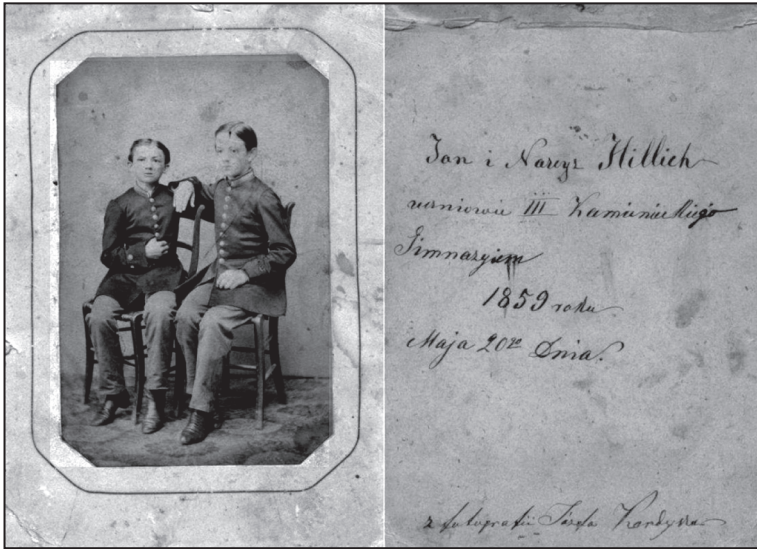 Jan i Narcyz Hillich
uczniowie III Kamienieckiego
Gimnazyem
1859 roku
Maja 20go Dnia.
z fotografii Józefa Kordysza